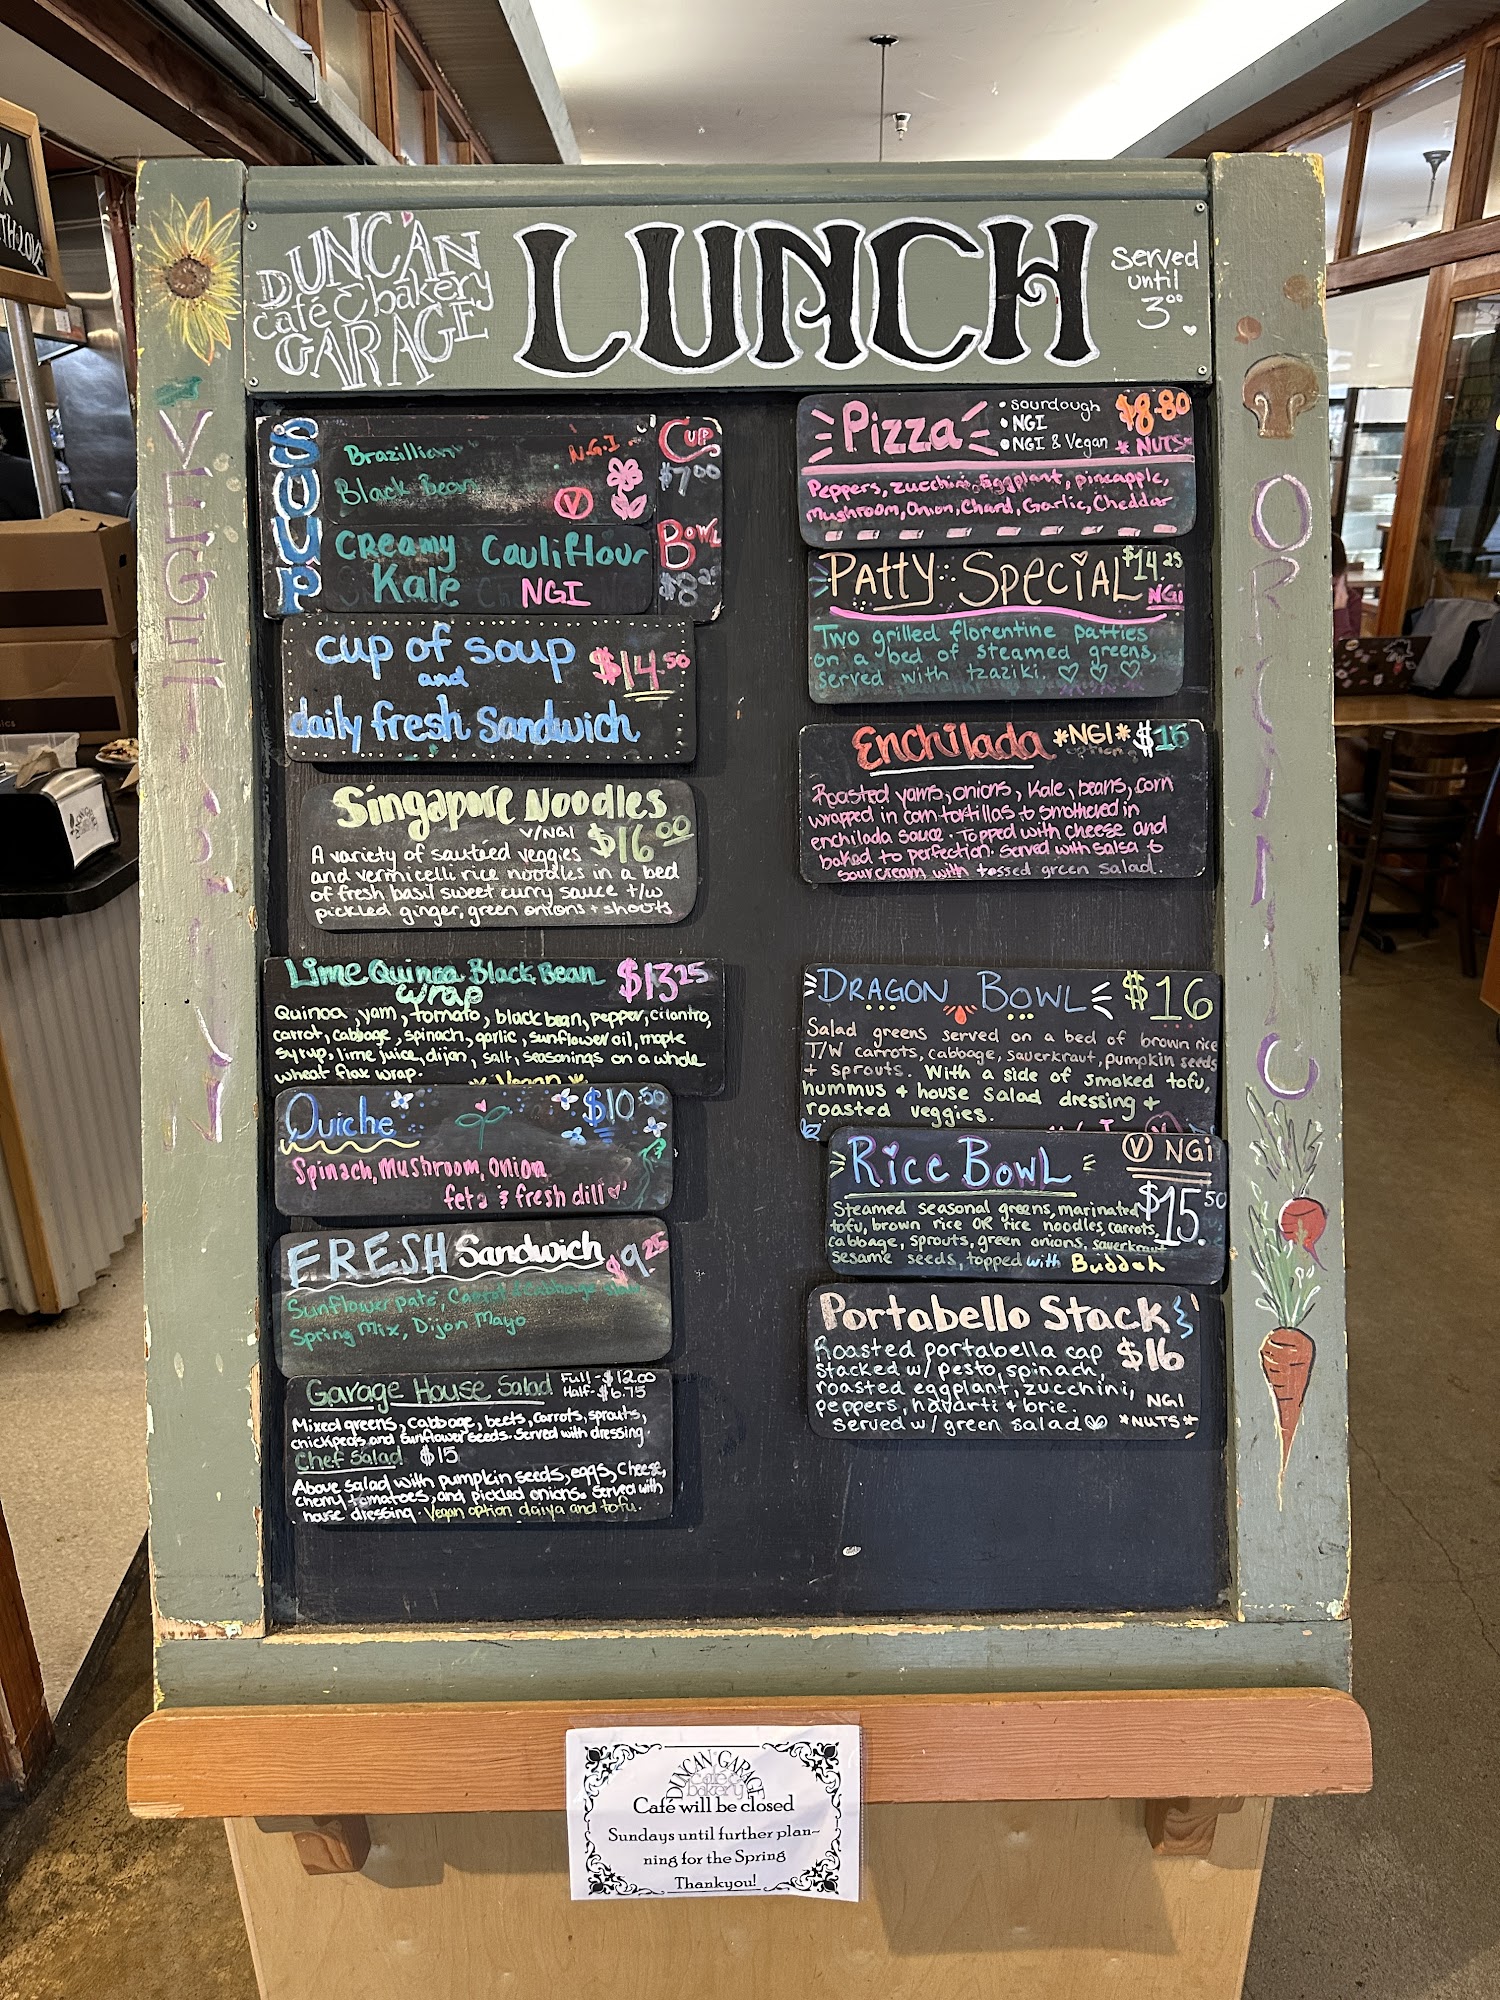 DUNCAN
café & bakery
GARAGE
LUNCH
Served
until
3⁰⁰
VEGETARIAN
ORGANIC
SOUP
Brazillian
N.G.I
Black Bean
V
Creamy Cauliflour
Kale NGI
CUP
$7⁰⁰
BOWL
$8
cup of soup
and
$14⁵⁰
daily fresh sandwich
Singapore Noodles
V/NGI
$16⁰⁰
A variety of sautéed veggies
and vermicelli rice noodles in a bed
of fresh basil sweet curry sauce t/w
pickled ginger, green onions + shouts
Lime Quinoa Black Bean
wrap
$13²⁵
Quinoa, yam, tomato, black bean, pepper, cilantro,
carrot, cabbage, spinach, garlic, sunflower oil, maple
syrup, lime juice, dijon, salt, seasonings on a whole
wheat flax wrap.
* Vegan *
Quiche
$10.⁵⁰
Spinach, Mushroom, Onion
feta & fresh dill
FRESH Sandwich
$9.²⁵
Sunflower paté, Carrot & Cabbage slaw
Spring Mix, Dijon Mayo
Garage House Salad
Full-$12.00
Half-$6.75
Mixed greens, Cabbage, beets, carrots, sprouts,
chickpeas and sunflower seeds. Served with dressing.
Chef Salad $15
Above salad with pumpkin seeds, eggs, cheese,
cherry tomatoes, and pickled onions. Served with
house dressing. Vegan option daiya and tofu.
Pizza
• sourdough
• NGI
• NGI & Vegan
$8.80
* NUTS *
Peppers, zucchini, Eggplant, pineapple,
Mushroom, Onion, Chard, Garlic, Cheddar
Patty Special
$14²⁵
NGI
Two grilled florentine patties
on a bed of steamed greens,
served with tzaziki.
Enchilada *NGI* $16
option
Roasted yams, onions, Kale, beans, corn
wrapped in corn tortillas & smothered in
enchilada sauce. Topped with cheese and
baked to perfection. Served with salsa &
sour cream with tossed green salad.
Dragon Bowl $16
Salad greens served on a bed of brown rice
T/W carrots, cabbage, sauerkraut, pumpkin seeds
+ sprouts. With a side of smoked tofu,
hummus + house salad dressing +
roasted veggies.
Rice Bowl
V NGI
$15.⁵⁰
Steamed seasonal greens, marinated
tofu, brown rice OR rice noodles, carrots,
cabbage, sprouts, green onions, sauerkraut
sesame seeds, topped with Buddah
Portabello Stack
$16
Roasted portabella cap
stacked w/ pesto, spinach,
roasted eggplant, zucchini,
peppers, havarti + brie.
NGI
served w/ green salad
*NUTS*
DUNCAN GARAGE
café &
bakery
Cafe will be closed
Sundays until further plan-
ning for the Spring
Thankyou!